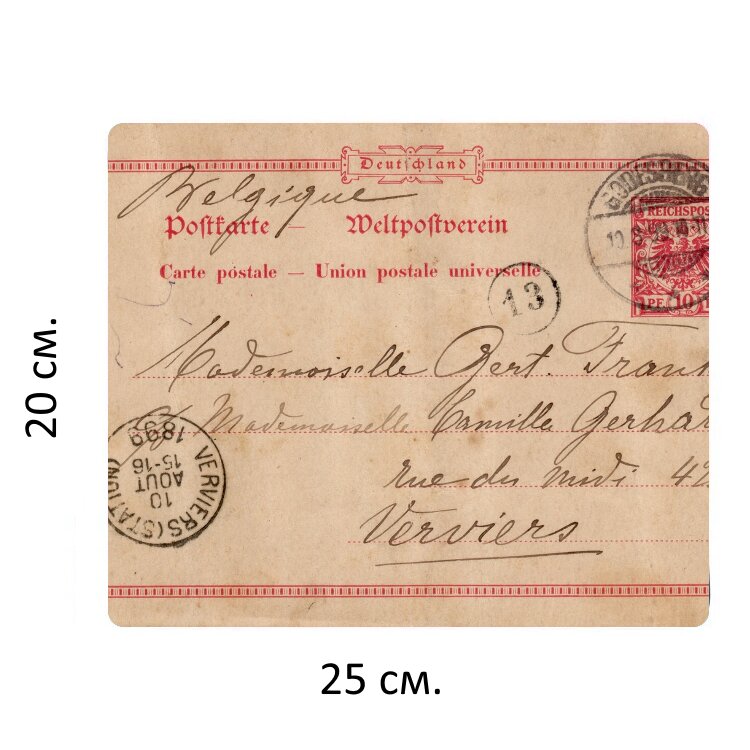 Deutschland
Belgique
Postkarte — Weltpostverein
Carte postale — Union postale universelle
GODESBERG
REICHSPOS
10 8 99
PF. 10
13
Mademoiselle Gert. Frans
Mademoiselle Camille Gerhar
rue du midi 42
Verviers
VERVIERS (STATION)
10
AOUT
15-16
1899
20 см.
25 см.